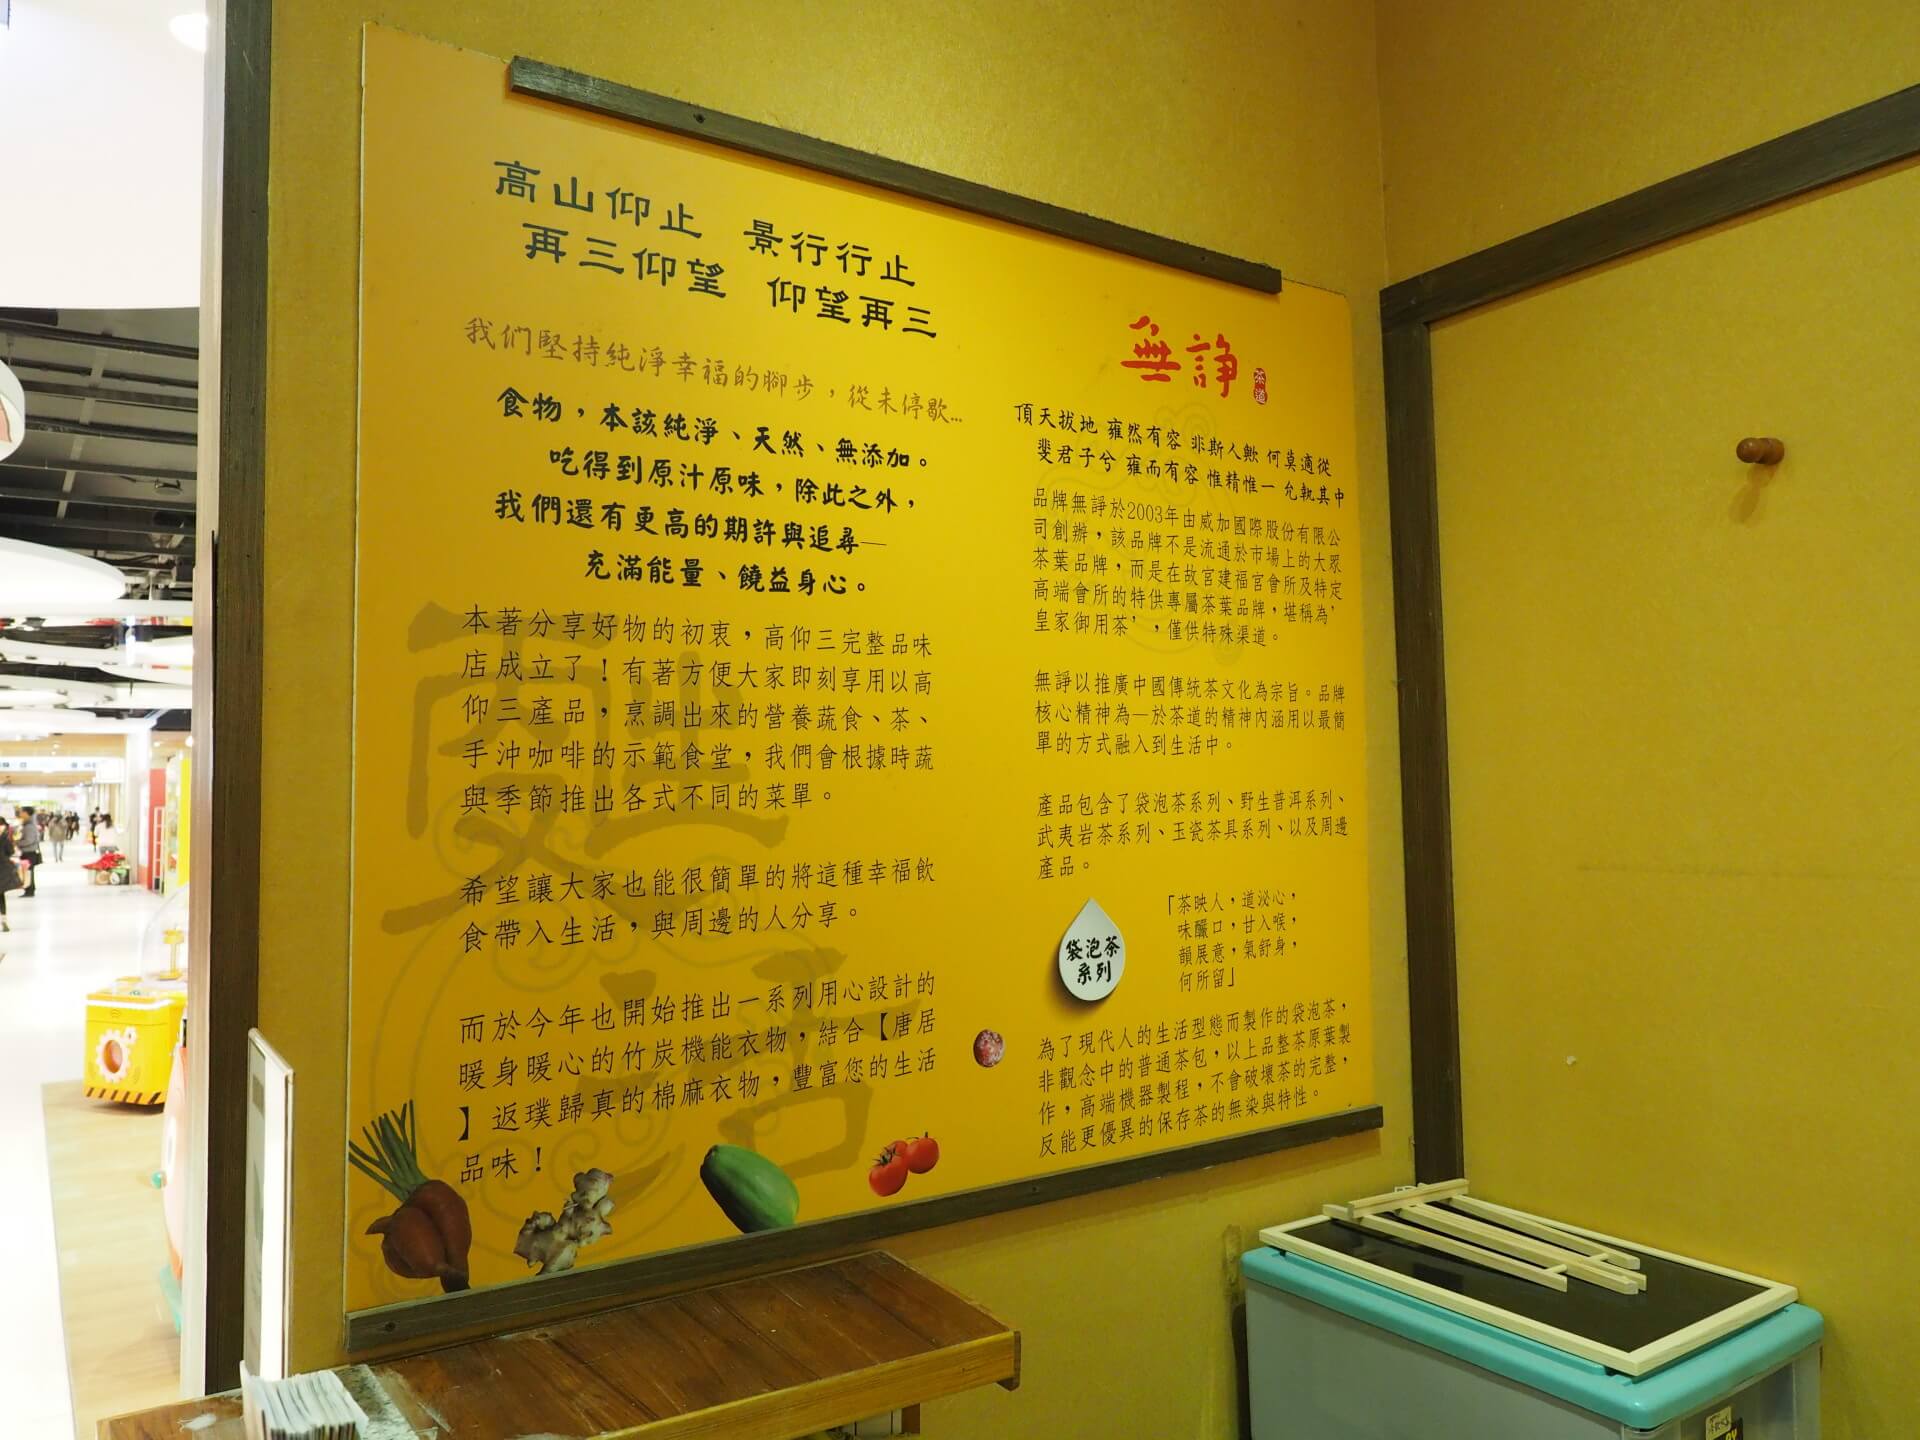 高山仰止 景行行止
再三仰望 仰望再三
我們堅持純淨幸福的腳步，從未停歇...
食物，本該純淨、天然、無添加。
吃得到原汁原味，除此之外，
我們還有更高的期許與追尋—
充滿能量、饒益身心。
本著分享好物的初衷，高仰三完整品味
店成立了！有著方便大家即刻享用以高
仰三產品，烹調出來的營養蔬食、茶、
手沖咖啡的示範食堂，我們會根據時蔬
與季節推出各式不同的菜單。
希望讓大家也能很簡單的將這種幸福飲
食帶入生活，與周邊的人分享。
而於今年也開始推出一系列用心設計的
暖身暖心的竹炭機能衣物，結合【唐居
】返璞歸真的棉麻衣物，豐富您的生活
品味！
無諍
茶道
頂天拔地 雍然有容 非斯人歟 何莫適從
斐君子兮 雍而有容 惟精惟一 允執其中
品牌無諍於2003年由威加國際股份有限公
司創辦，該品牌不是流通於市場上的大眾
茶葉品牌，而是在故宮建福宮會所及特定
高端會所的特供專屬茶葉品牌，堪稱為’
皇家御用茶’，僅供特殊渠道。
無諍以推廣中國傳統茶文化為宗旨。品牌
核心精神為—於茶道的精神內涵用以最簡
單的方式融入到生活中。
產品包含了袋泡茶系列、野生普洱系列、
武夷岩茶系列、玉瓷茶具系列、以及周邊
產品。
袋泡茶
系列
「茶映人，道泌心，
味釅口，甘入喉，
韻展意，氣舒身，
何所留」
為了現代人的生活型態而製作的袋泡茶，
非觀念中的普通茶包，以上品整茶原葉製
作，高端機器製程，不會破壞茶的完整，
反能更優異的保存茶的無染與特性。